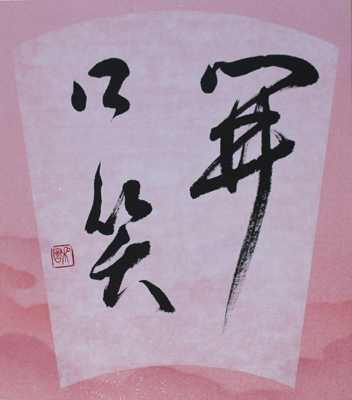 開
口笑